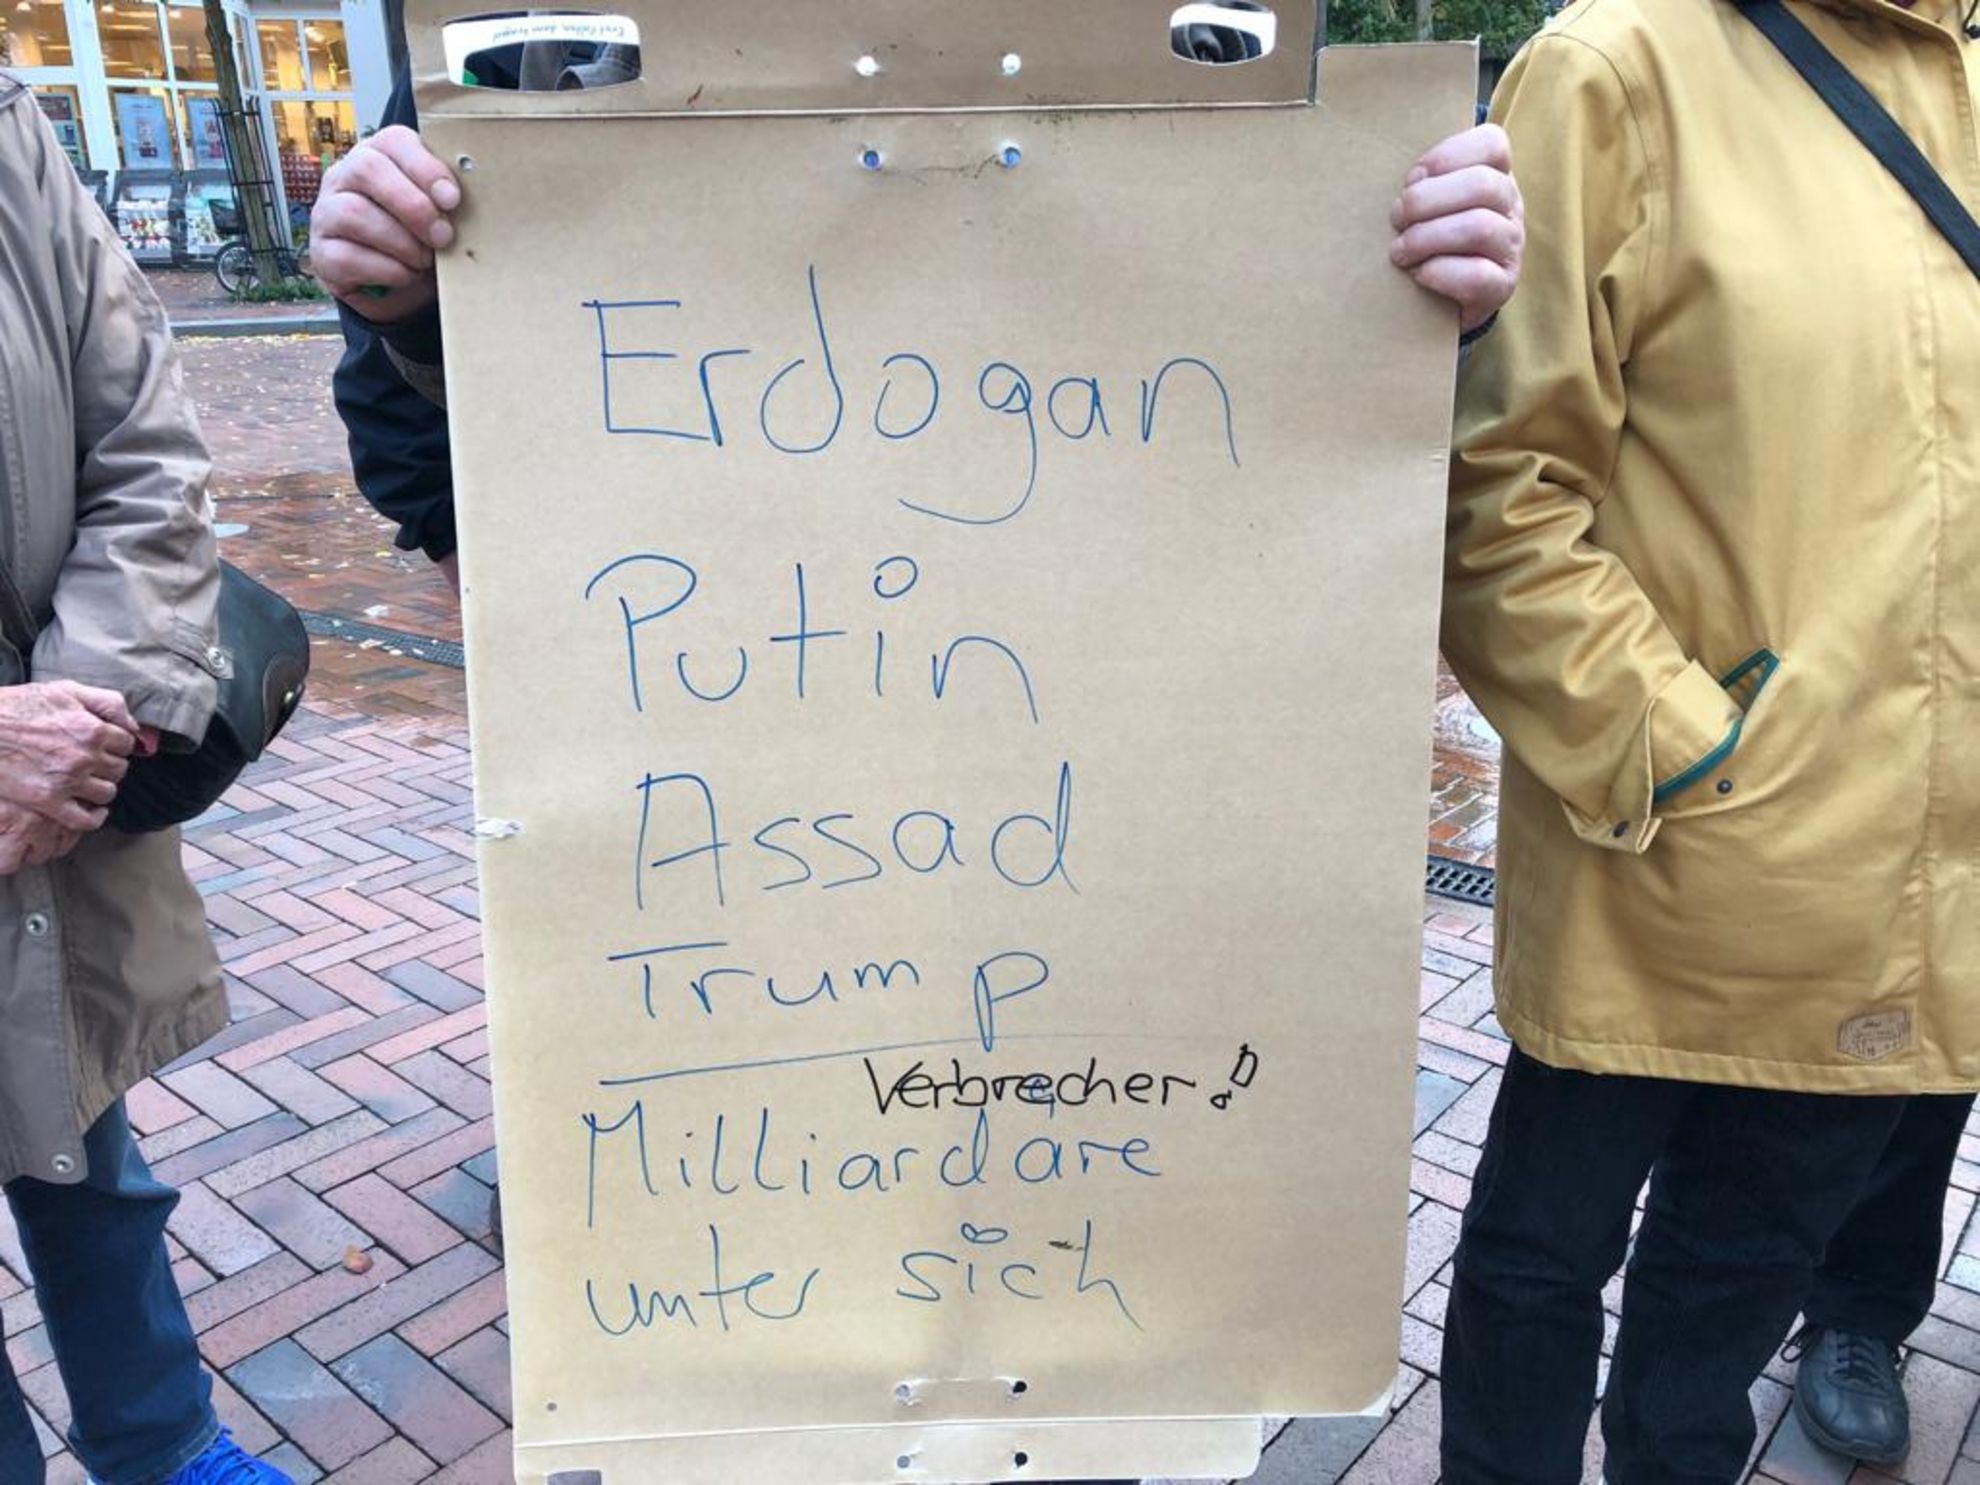 Erdogan
Putin
Assad
Trump
Verbrecher!
Milliardäre
unter sich